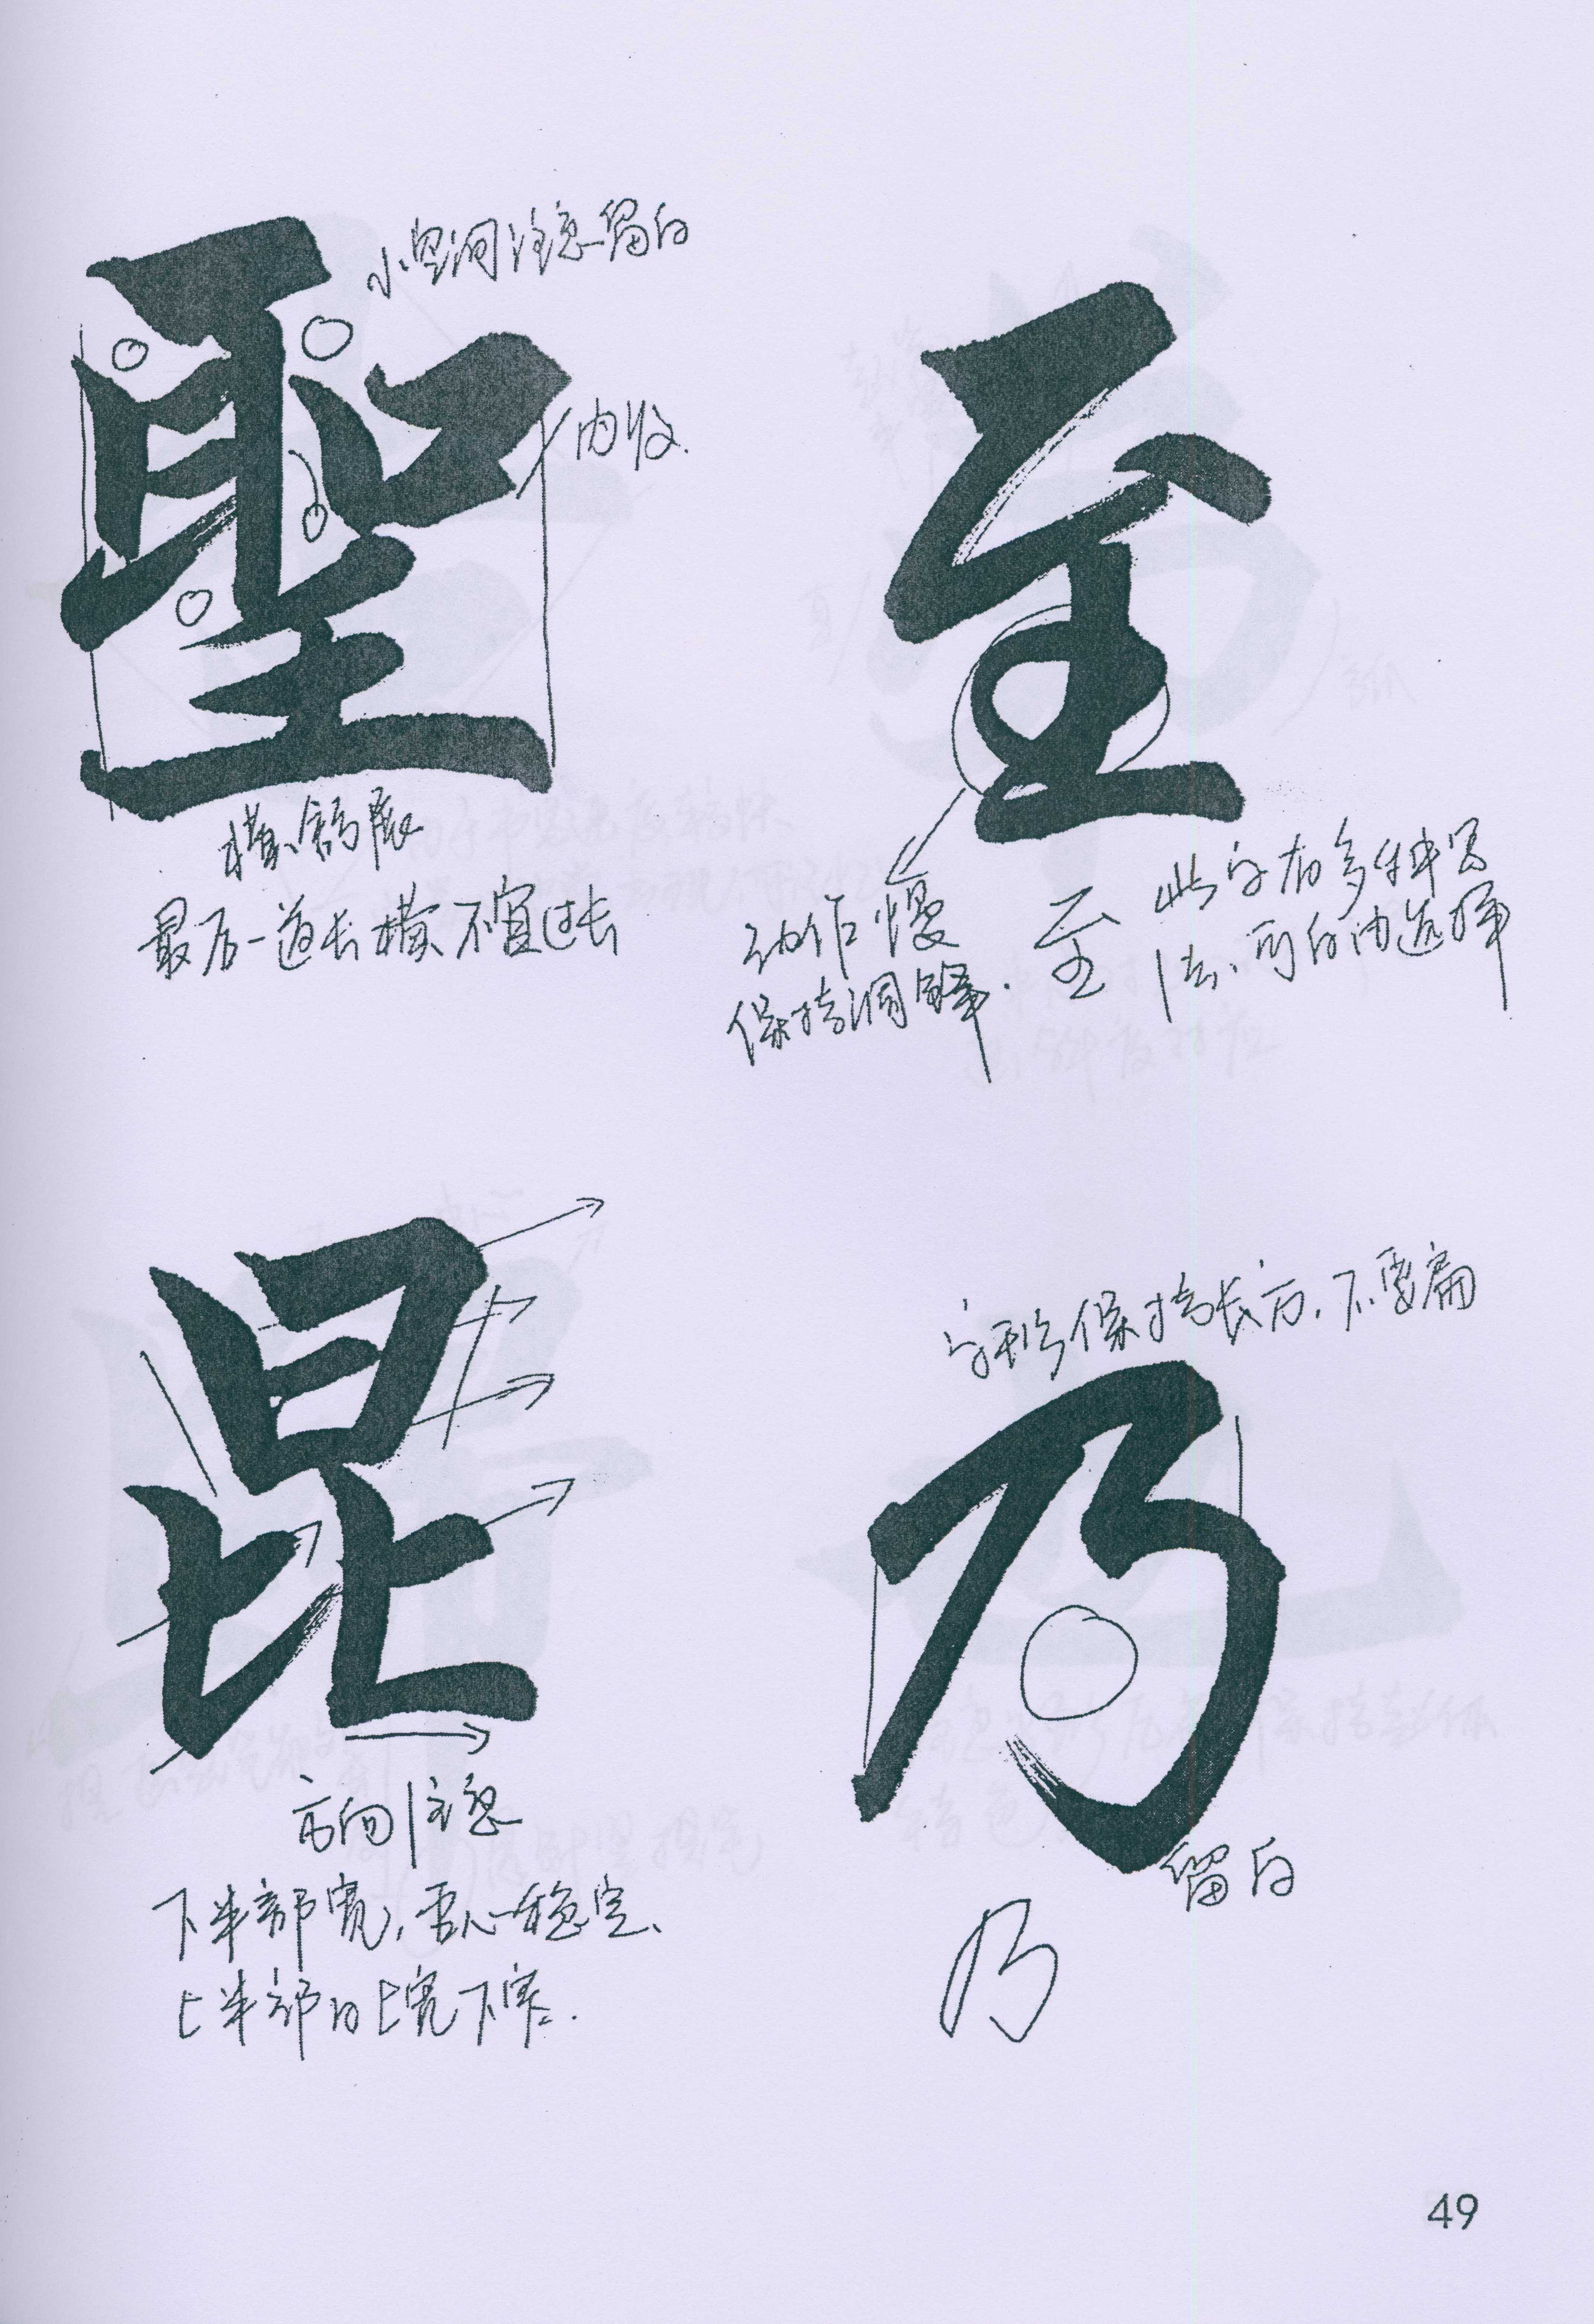 聖
小空间注意留白
内收.
横舒展
最后一道长横不宜过长
至
动作慢
保持调锋.
至
此字有多种写
法、可自由选择
昆
方向注意
下半部宽,重心稳定、
上半部日上宽下窄.
字形保持长方,不要扁
乃
留白
乃
49